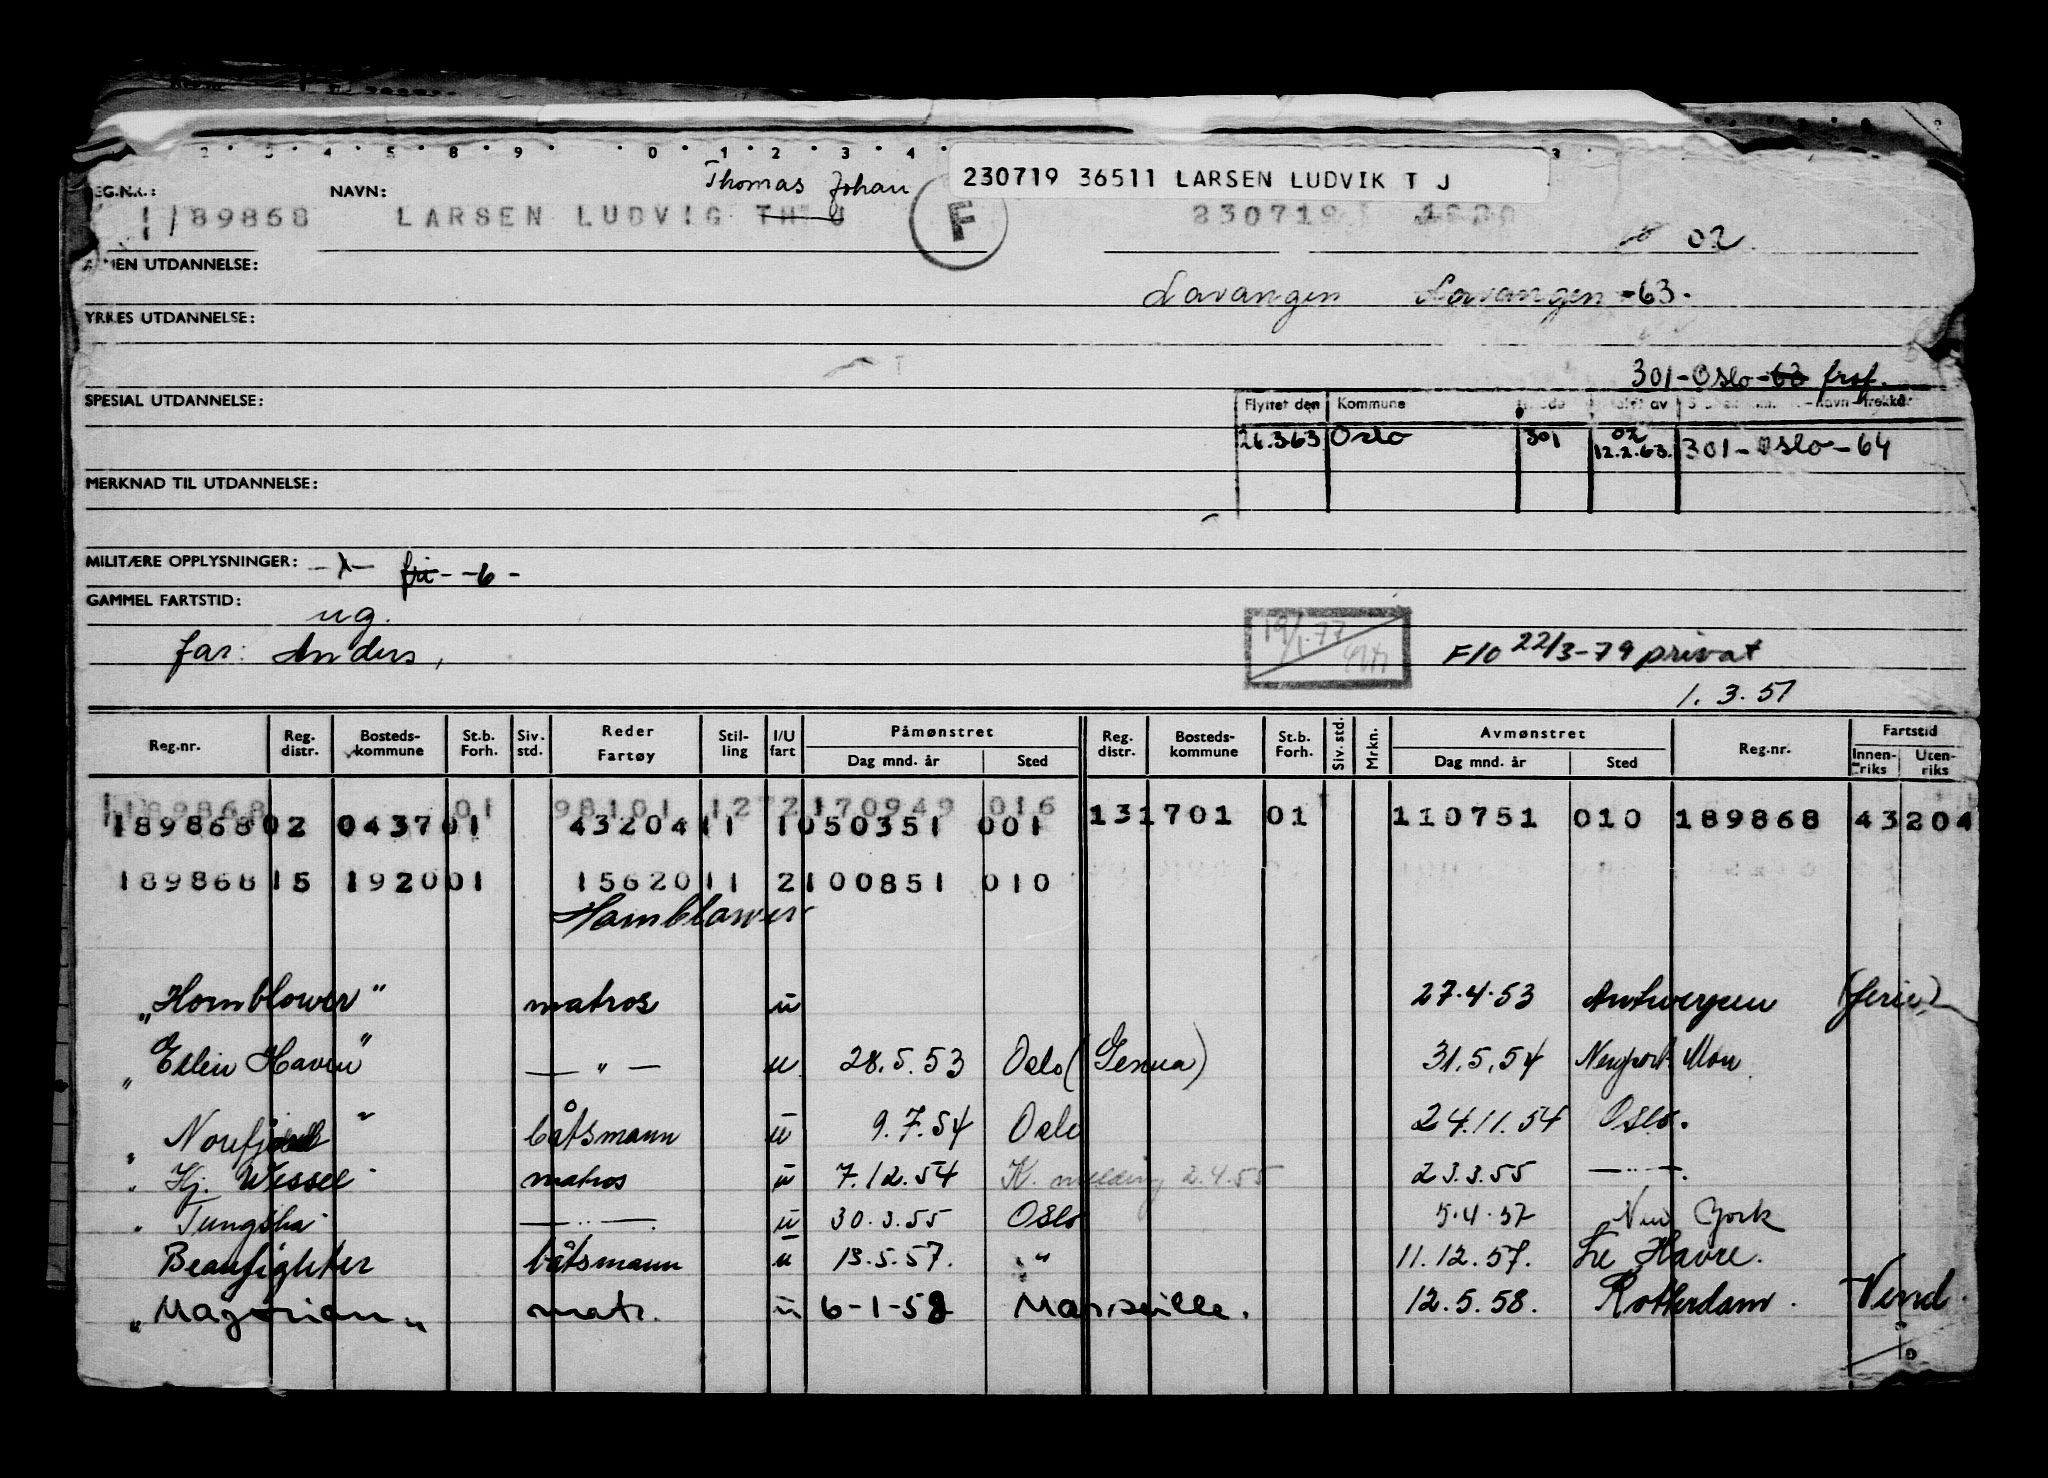 2 3 4 5 8 9 0 1 2 3 4
Thomas Johan
230719 36511 LARSEN LUDVIK T J
EG.NR.: NAVN:
189868 LARSEN LUDVIG TH J F 230719
02
MEN UTDANNELSE:
Lavangen Lavangen -63.
YRKES UTDANNELSE:
301-Oslo-63 frsf.
SPESIAL UTDANNELSE:
Flyttet den Kommune
26.3.63 Oslo 301 02 12.2.63. 301-Oslo-64
MERKNAD TIL UTDANNELSE:
MILITÆRE OPPLYSNINGER: fri - -6-
GAMMEL FARTSTID:
ug.
far: Anders,
19/1.77
F/O 22/3-79 privat
1.3.51
Reg.nr. Reg. distr. Bosteds- kommune St.b. Forh. Siv. std. Reder Fartøy Stil- ling I/U fart Påmønstret Dag mnd. år Sted Reg. distr. Bosteds- kommune St.b. Forh. Siv. std. Mrkn. Avmønstret Dag mnd. år Sted Reg.nr. Fartstid Innen- riks Uten- riks
189868 01 98101 12 2 170949 016
189868 02 0437 01 43204 11 1 050351 001 13 1701 01 110751 010 189868 43204
189868 15 1920 01 15620 11 2 100851 010
Hornblower
"Hornblower" matros u 27.4.53 Antwerpen (ferie)
"Ellin Haven" — " — u 28.5.53 Oslo (Genua) 31.5.54 Newport Mon
" Norefjord " båtsmann u 9.7.54 Oslo 24.11.54 Oslo.
" Hj. Wessel matros u 7.12.54 K. melding 2.4.55 23.3.55 — " —.
" Tungsha — " — u 30.3.55 Oslo 5.4.57 New York
Beaufighter båtsmann u 13.5.57. " 11.12.57. Le Havre.
"Majorian" matr. u 6-1-58 Marseille. 12.5.58. Rotterdam. Vend.